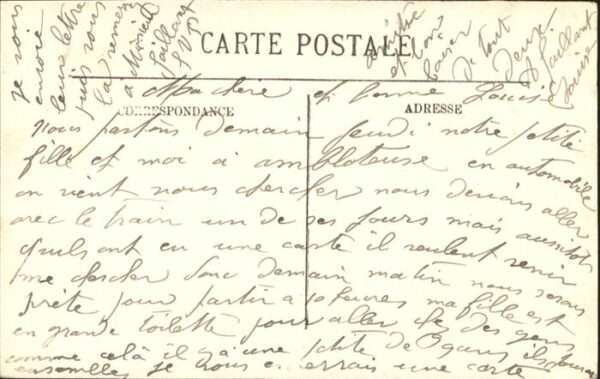 je vous
envoie
leur lettre
vous
la
a
Gaillard
S.V.P
CARTE POSTALE
et bons
baiser
de tout
deux
Gaillard
Louise
Ma chère et bonne Louise
CORRESPONDANCE
ADRESSE
nous partons demain jeudi notre petite
fille et moi a ambleteuse en automobile
on vient nous chercher nous devions aller
avec le train un de ses jours mais aussitot
quils ont eu une carte il veulent venir
me chercher donc demain matin nous serons
prète pour partir a 10 heures ma fille est
en grande toilette pour aller chez des gens
comme celà il y a une petite de 8 ans il
ensembles je vous une carte